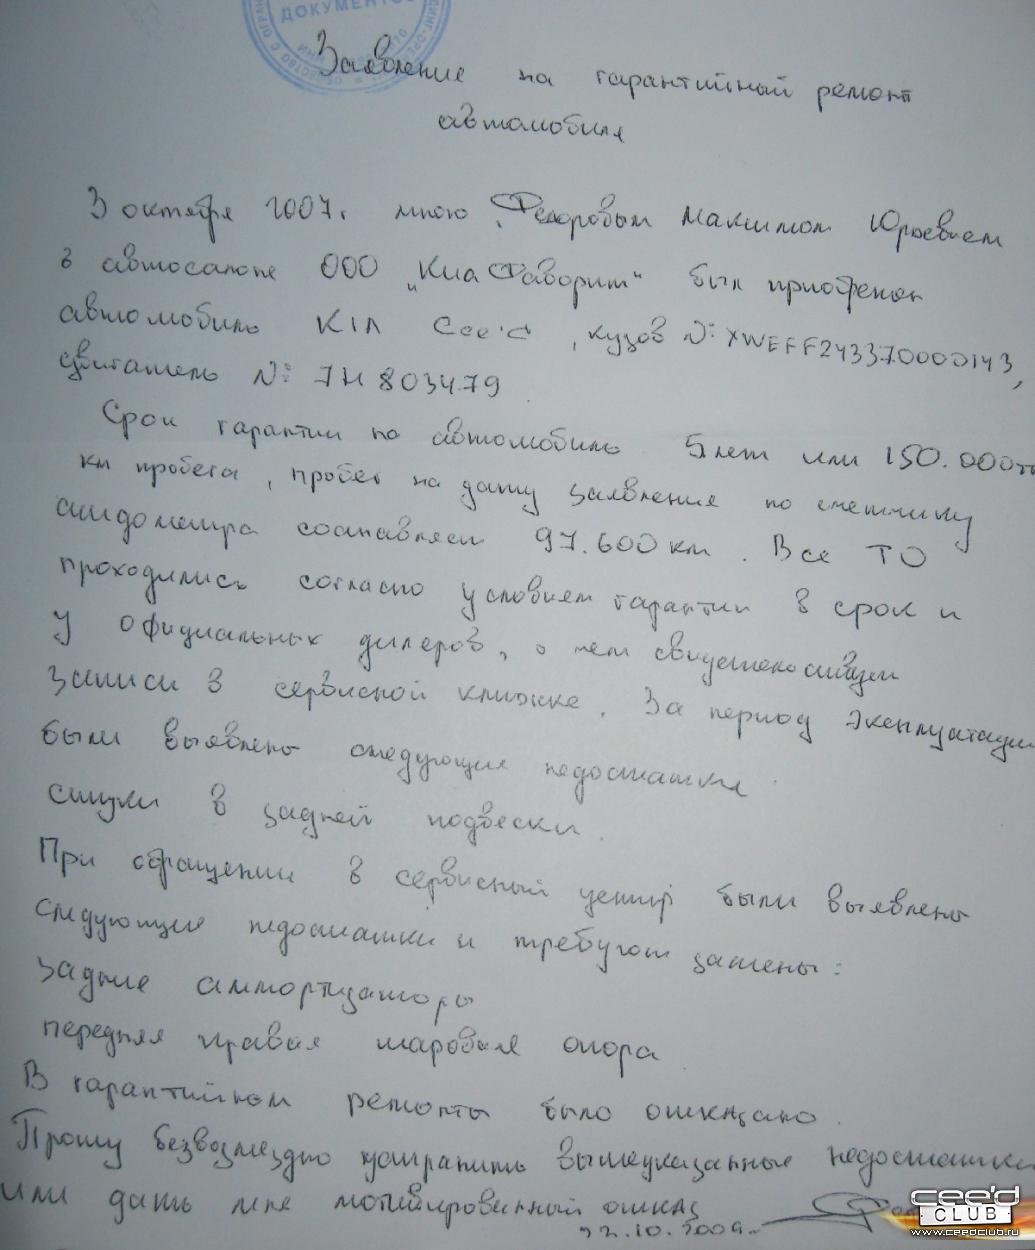 ДОКУМЕНТОВ
Заявление на гарантийный ремонт
автомобиля
3 октября 2007г. мною, Федоровым Максимом Юрьевичем
в автосалоне ООО „Киа Фаворит“ был приобретен
автомобиль KIA Cee'd, кузов №: XWEFF243370000143,
двигатель №: 7H803479.
Срок гарантии по автомобилю 5 лет или 150.000
км пробега, пробег на дату заявления по счетчику
спидометра составляет 97.600 км. Все ТО
проходились согласно условиям гарантии в срок и
у официальных дилеров, о чем свидетельствуют
записи в сервисной книжке. За период эксплуатации
были выявлено следующие недостатки
стуки в задней подвески.
При обращении в сервисный центр были выявлено
следующие недостатки и требуют замены:
задние аммортизаторы
передняя правая шаровая опора
В гарантийном ремонты было отказано.
Прошу безвозмездно устранить вышеуказанные недостатки
или дать мне мотивированный отказ
22.10.2009г.
cee'd
CLUB
www.ceedclub.ru